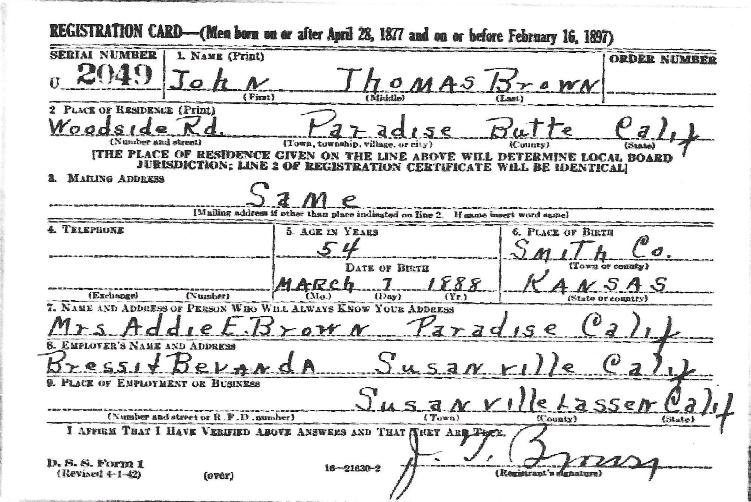 REGISTRATION CARD—(Men born on or after April 28, 1877 and on or before February 16, 1897)
SERIAL NUMBER 1. NAME (Print) ORDER NUMBER
U 2049 John Thomas Brown
(First) (Middle) (Last)
2 PLACE OF RESIDENCE (Print)
Woodside Rd. Paradise Butte Calif
(Number and street) (Town, township, village, or city) (County) (State)
[THE PLACE OF RESIDENCE GIVEN ON THE LINE ABOVE WILL DETERMINE LOCAL BOARD
JURISDICTION; LINE 2 OF REGISTRATION CERTIFICATE WILL BE IDENTICAL]
3. MAILING ADDRESS
Same
[Mailing address if other than place indicated on line 2. If same insert word same]
4. TELEPHONE 5. AGE IN YEARS 6. PLACE OF BIRTH
54 Smith Co.
DATE OF BIRTH (Town or county)
MARCH 7 1888 KANSAS
(Exchange) (Number) (Mo.) (Day) (Yr.) (State or country)
7. NAME AND ADDRESS OF PERSON WHO WILL ALWAYS KNOW YOUR ADDRESS
Mrs Addie E. Brown Paradise Calif
8. EMPLOYER'S NAME AND ADDRESS
Bressi & Bevanda Susanville Calif
9. PLACE OF EMPLOYMENT OR BUSINESS
Susanville Lassen Calif
(Number and street or R. F. D. number) (Town) (County) (State)
I AFFIRM THAT I HAVE VERIFIED ABOVE ANSWERS AND THAT THEY ARE TRUE.
J. T. Brown
D. S. S. Form 1
(Revised 4-1-42) (over) 16—21630-2 (Registrant's signature)